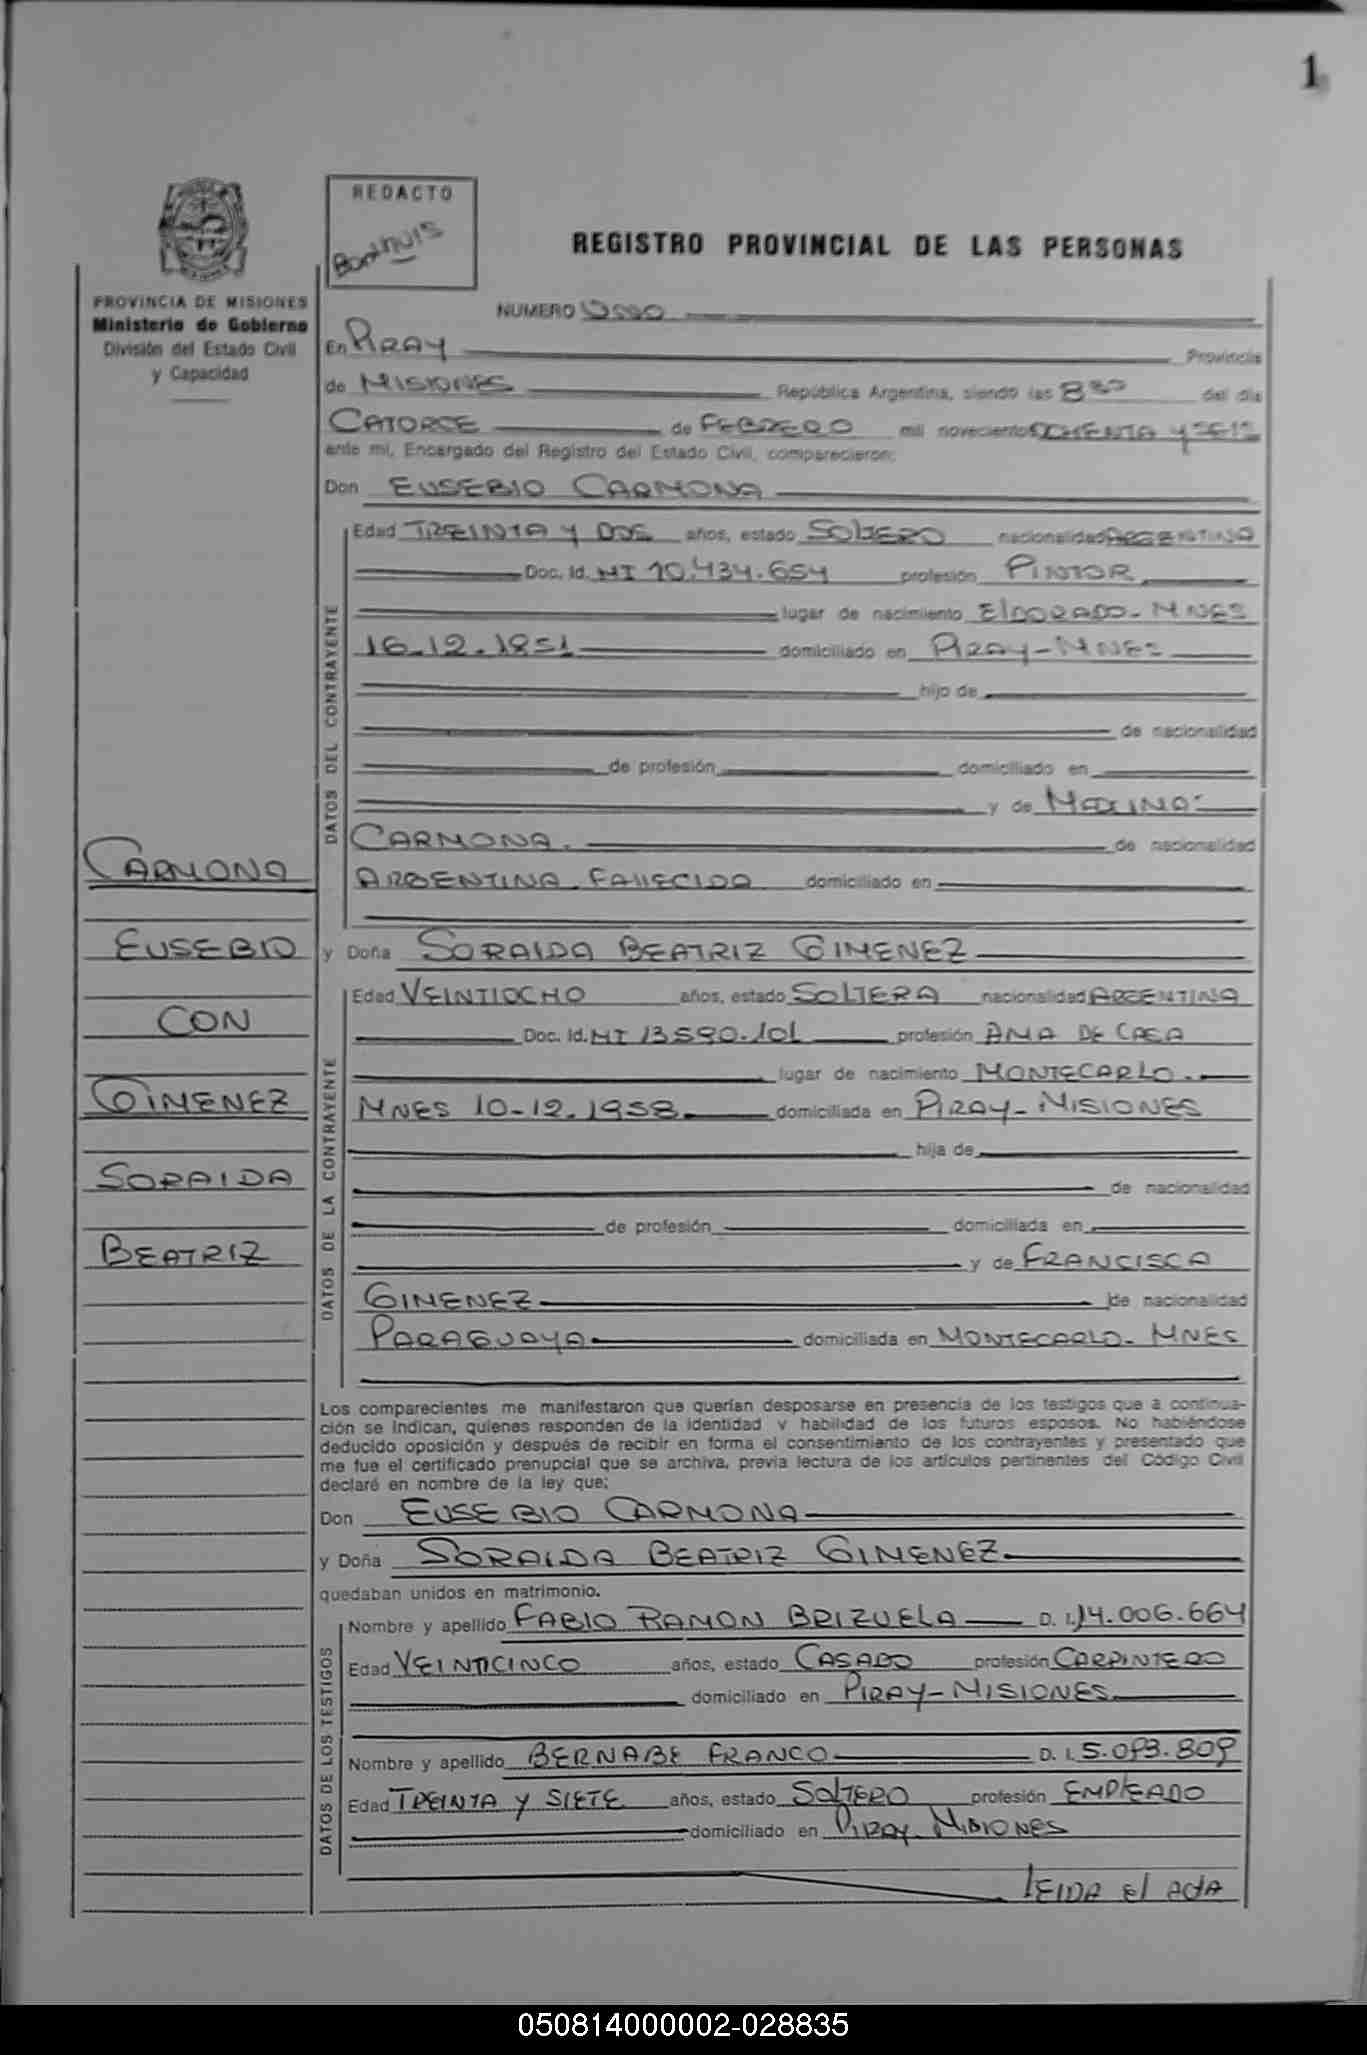 1
REDACTO
REGISTRO PROVINCIAL DE LAS PERSONAS
PROVINCIA DE MISIONES
Ministerio de Gobierno
División del Estado Civil
y Capacidad
NUMERO
En PIRAY Provincia
de MISIONES República Argentina, siendo las 8 30 del día
CATORCE de FEBRERO mil novecientos OCHENTA Y SEIS
ante mí, Encargado del Registro del Estado Civil, comparecieron:
Don EUSEBIO CARMONA
DATOS DEL CONTRAYENTE
Edad TREINTA Y DOS años, estado SOLTERO nacionalidad ARGENTINA
Doc. Id. MI 10.434.654 profesión PINTOR
lugar de nacimiento ELDORADO - MNES
16-12-1951 domiciliado en PIRAY - MNES
hijo de
de nacionalidad
de profesión domiciliado en
y de
CARMONA. de nacionalidad
ARGENTINA FALLECIDA domiciliado en
CARMONA
EUSEBIO
CON
GIMENEZ
SORAIDA
BEATRIZ
y Doña SORAIDA BEATRIZ GIMENEZ
DATOS DE LA CONTRAYENTE
Edad VEINTIOCHO años, estado SOLTERA nacionalidad ARGENTINA
Doc. Id. MI 13590.101 profesión AMA DE CASA
lugar de nacimiento MONTECARLO.
MNES 10-12-1958 domiciliada en PIRAY - MISIONES
hija de
de nacionalidad
de profesión domiciliada en
y de FRANCISCA
GIMENEZ de nacionalidad
PARAGUAYA domiciliada en MONTECARLO - MNES
Los comparecientes me manifestaron que querían desposarse en presencia de los testigos que a continua-
ción se indican, quienes responden de la identidad y habilidad de los futuros esposos. No habiéndose
deducido oposición y después de recibir en forma el consentimiento de los contrayentes y presentado que
me fue el certificado prenupcial que se archiva, previa lectura de los artículos pertinentes del Código Civil
declaré en nombre de la ley que:
Don EUSEBIO CARMONA
y Doña SORAIDA BEATRIZ GIMENEZ
quedaban unidos en matrimonio.
DATOS DE LOS TESTIGOS
Nombre y apellido FABIO RAMON BRIZUELA D. I. 14.006.664
Edad VEINTICINCO años, estado CASADO profesión CARPINTERO
domiciliado en PIRAY - MISIONES
Nombre y apellido BERNABE FRANCO D. I. 5.093.809
Edad TREINTA Y SIETE años, estado SOLTERO profesión EMPLEADO
domiciliado en PIRAY - MISIONES
LEIDA El ACtA
050814000002-028835